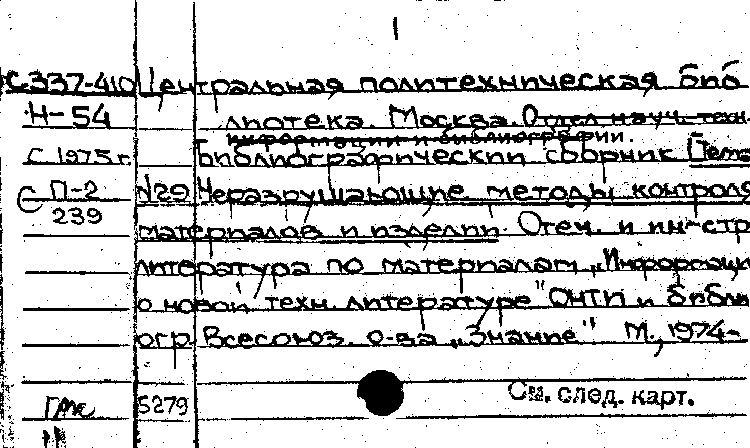 1
С.337-410 Центральная политехническая биб
Н-54 лиотека. Москва. Отдел науч. техн.
информации и библиографии.
с 1975г. Библиографический сборник
С П-2 N29 Неразрушающие методы контроля
239 материалов и изделий. Отеч. и ин-стр
литература по материалам „Информаци
о новой техн. литературе" ОНТИ и библи
огр Всесоюз. о-ва „Знание" М., 1974-
5279 См. след. карт.